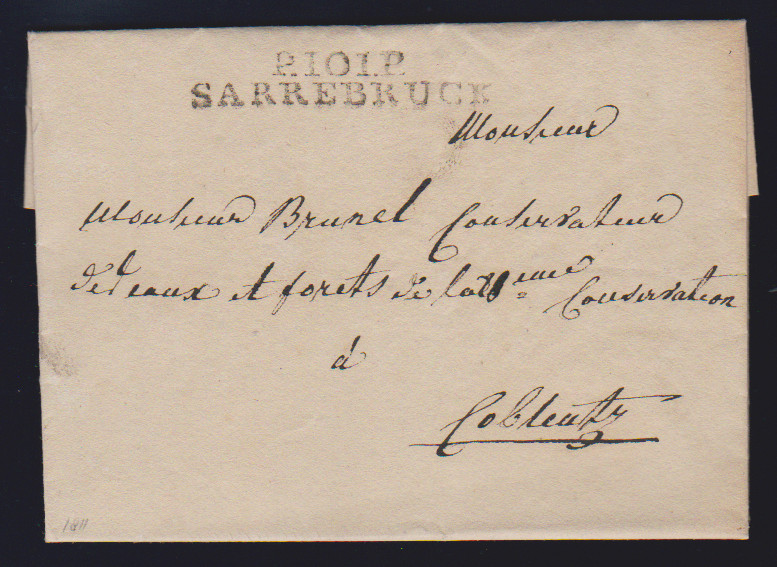 P.101.P.
SARREBRUCK
Monsieur
Monsieur Brunel Conservateur
des eaux et forets de la eme Conservation
à
Coblentz
1811